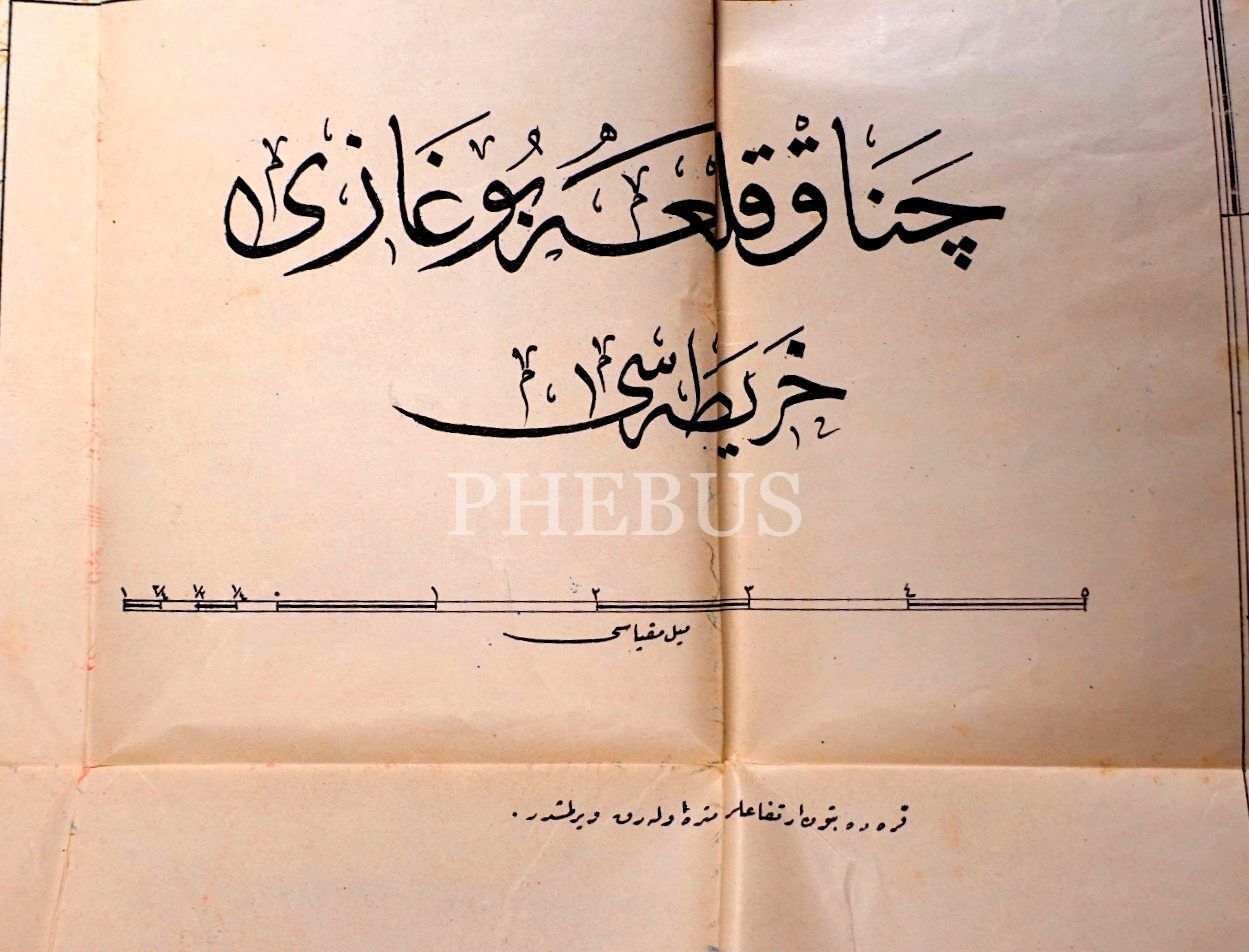 چناق قلعه بوغازی
خریطه سی
PHEBUS
١ ٣/٤ ١/٢ ١/٤ ٠ ١ ٢ ٣ ٤ ٥
میل مقیاسی
قره ده بتون ارتفاعلر متره اوله رق ویرلمشدر.